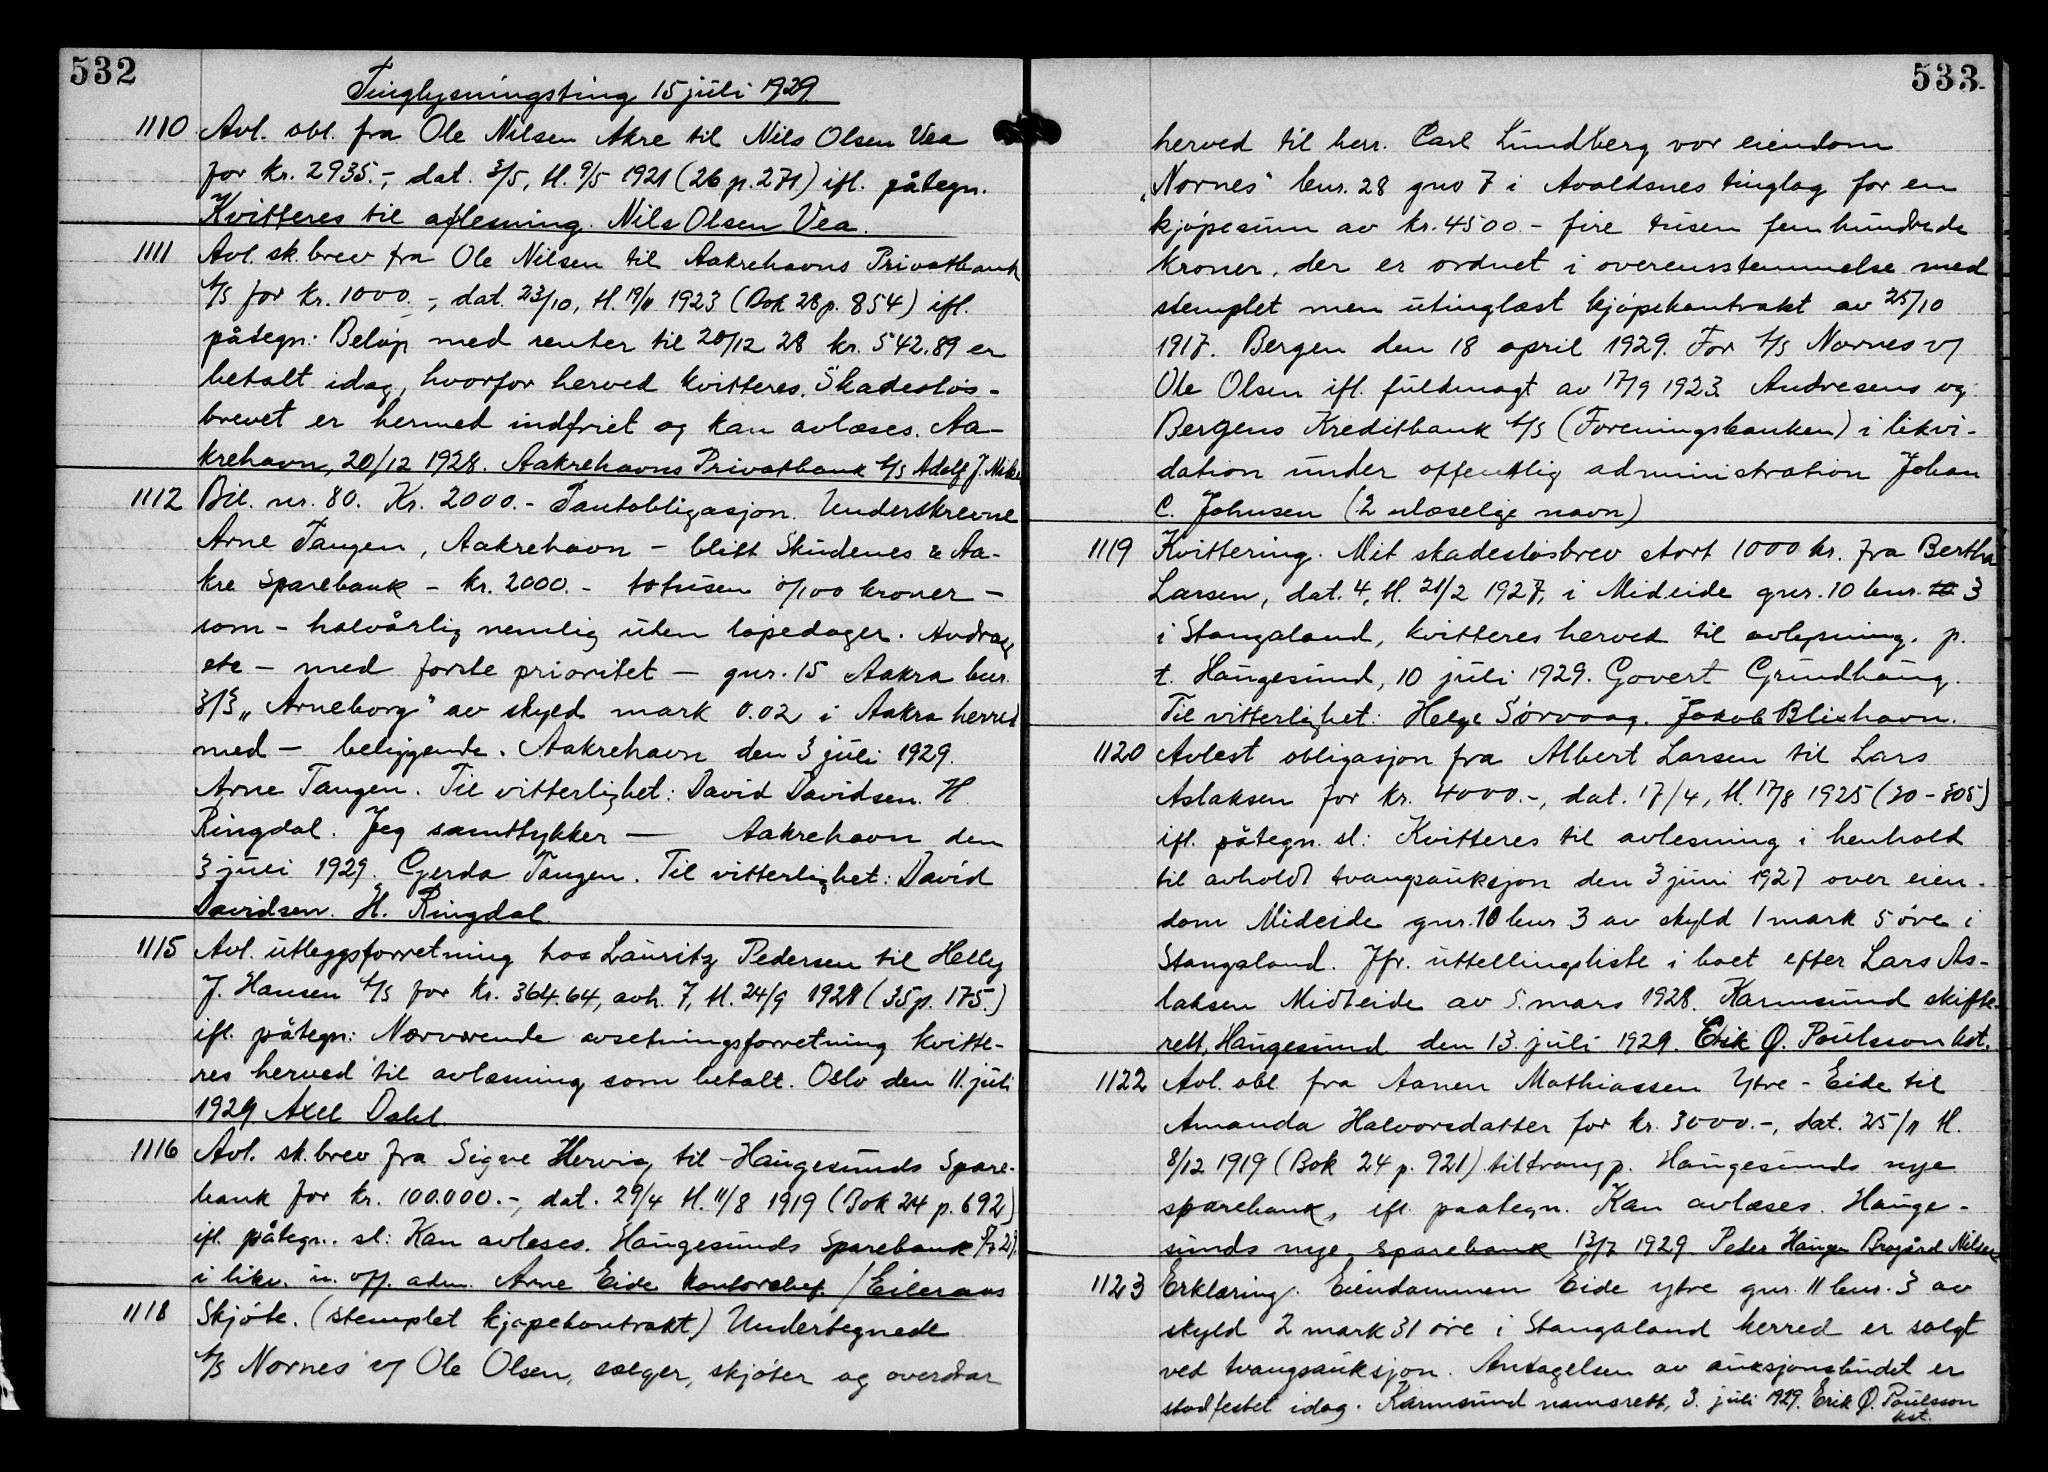 532
Tinglysningsting 15 juli 1929.
1110 Avl. obl. fra Ole Nilsen Akre til Nils Olsen Vea
for kr. 2935.-, dat. 3/5, tl. 9/5 1921 (26 p. 271) ifl. påtegn.
Kvitteres til aflesning. Nils Olsen Vea.
1111 Avl. sk.brev fra Ole Nilsen til Aakrehavns Privatbank
A/S for kr. 1000.-, dat. 23/10, tl. 19/11 1923 (Bok 28 p. 854) ifl.
påtegn: Beløp med renter til 20/12 28 kr. 542.89 er
betalt idag, hvorfor herved kvitteres. Skadesløs-
brevet er hermed indfriet og kan avlæses. Aa-
krehavn, 20/12 1928. Aakrehavns Privatbank A/S Adolf J.
1112 Bil. nr. 80. Kr. 2000.- Pantobligasjon. Underskrevne
Arne Tangen, Aakrehavn - blitt Skudenes & Aa-
kre Sparebank - kr. 2000.- totusen 0/100 kroner -
som - halvårlig nemlig uten løpedager. Avdrag
etc - med første prioritet - gnr. 15 Aakra bnr.
3/3 „Arneborg" av skyld mark 0.02 i Aakra herred
med - beliggende. Aakrehavn den 3 juli 1929.
Arne Tangen. Til vitterlighet: David Davidsen. H.
Ringdal. Jeg samtykker — Aakrehavn den
3 juli 1929. Gerda Tangen. Til vitterlighet: David
Davidsen. H. Ringdal.
1115 Avl. utleggsforretning hos Lauritz Pedersen til Helly
J. Hansen A/S for kr. 364.64, avh. 7, tl. 24/9 1928 (35 p. 175.)
ifl. påtegn: Nærværende avsetningsforretning kvitte-
res herved til avlæsning som betalt. Oslo den 11. juli
1929. Axel Dahl.
1116 Avl. sk.brev fra Sigve Hervig til Haugesunds Spare-
bank for kr. 100.000.-, dat. 29/4 tl. 11/8 1919 (Bok 24 p. 692)
ifl. påtegn. sl: Kan avleses. Haugesunds Sparebank
i likv. u. off. adm. Arne Eide kontorchef. /Eileraas
1118 Skjøte. (stemplet kjøpekontrakt) Undertegnede
A/S Nornes v/ Ole Olsen, sælger, skjøter og overdrar
533.
herved til herr. Carl Lundberg vor eiendom
„Nornes" bnr. 28 gno 7 i Avaldsnes tinglag for en
kjøpesum av kr. 4500 - fire tusen fem hundrede
kroner, der er ordnet i overensstemmelse med
stemplet men utinglæst kjøpekontrakt av 25/10
1917. Bergen den 18 april 1929. For A/S Nornes v/
Ole Olsen ifl. fuldmagt av 17/9 1923. Andresens og
Bergens Kreditbank A/S (Foreningsbanken) i likvi-
dation under offentlig administration Johan
C. Johnsen (2 ulæselige navn)
1119 Kvittering. Mit skadesløsbrev stort 1000 kr. fra Bertha
Larsen, dat. 4, tl. 21/2 1927, i Mideide gnr. 10 bnr. 3
i Stangaland, kvitteres herved til avlysning. p.
t. Haugesund, 10 juli 1929. Govert Grindhaug.
Til vitterlighet: Helge Sørvaag. Jakob Blixhavn.
1120 Avlest obligasjon fra Albert Larsen til Lars
Aslaksen for kr. 4000.-, dat. 17/4, tl. 17/8 1925 (30 - 305)
ifl. påtegn. sl: Kvitteres til avlesning i henhold
til avholdt tvangsauksjon den 3 juni 1927 over eien-
dom Mideide gnr. 10 bnr 3 av skyld 1 mark 5 øre i
Stangaland. Jfr. uttellingsliste i boet efter Lars As-
laksen Midteide av 5. mars 1928. Karmsund skifte-
rett, Haugesund den 13. juli 1929. Erik Ø. Poulsson kst.
1122 Avl. obl. fra Aanen Mathiassen Ytre-Eide til
Amanda Halvorsdatter for kr. 3000.-, dat. 25/11 tl.
8/12 1919 (Bok 24 p. 921) tiltransp. Haugesunds nye
sparebank, ifl. paategn. Kan avlæses. Hauge-
sunds nye sparebank 13/7 1929 Peder Haugen Brogård Nilsen
1123 Erklæring. Eiendommen Eide ytre gnr. 11 bnr. 3 av
skyld 2 mark 31 øre i Stangaland herred er solgt
ved tvangsauksjon. Antagelsen av auksjonsbudet er
stadfestet idag. Karmsund namsrett, 3. juli 1929. Erik Ø. Poulsson
kst.